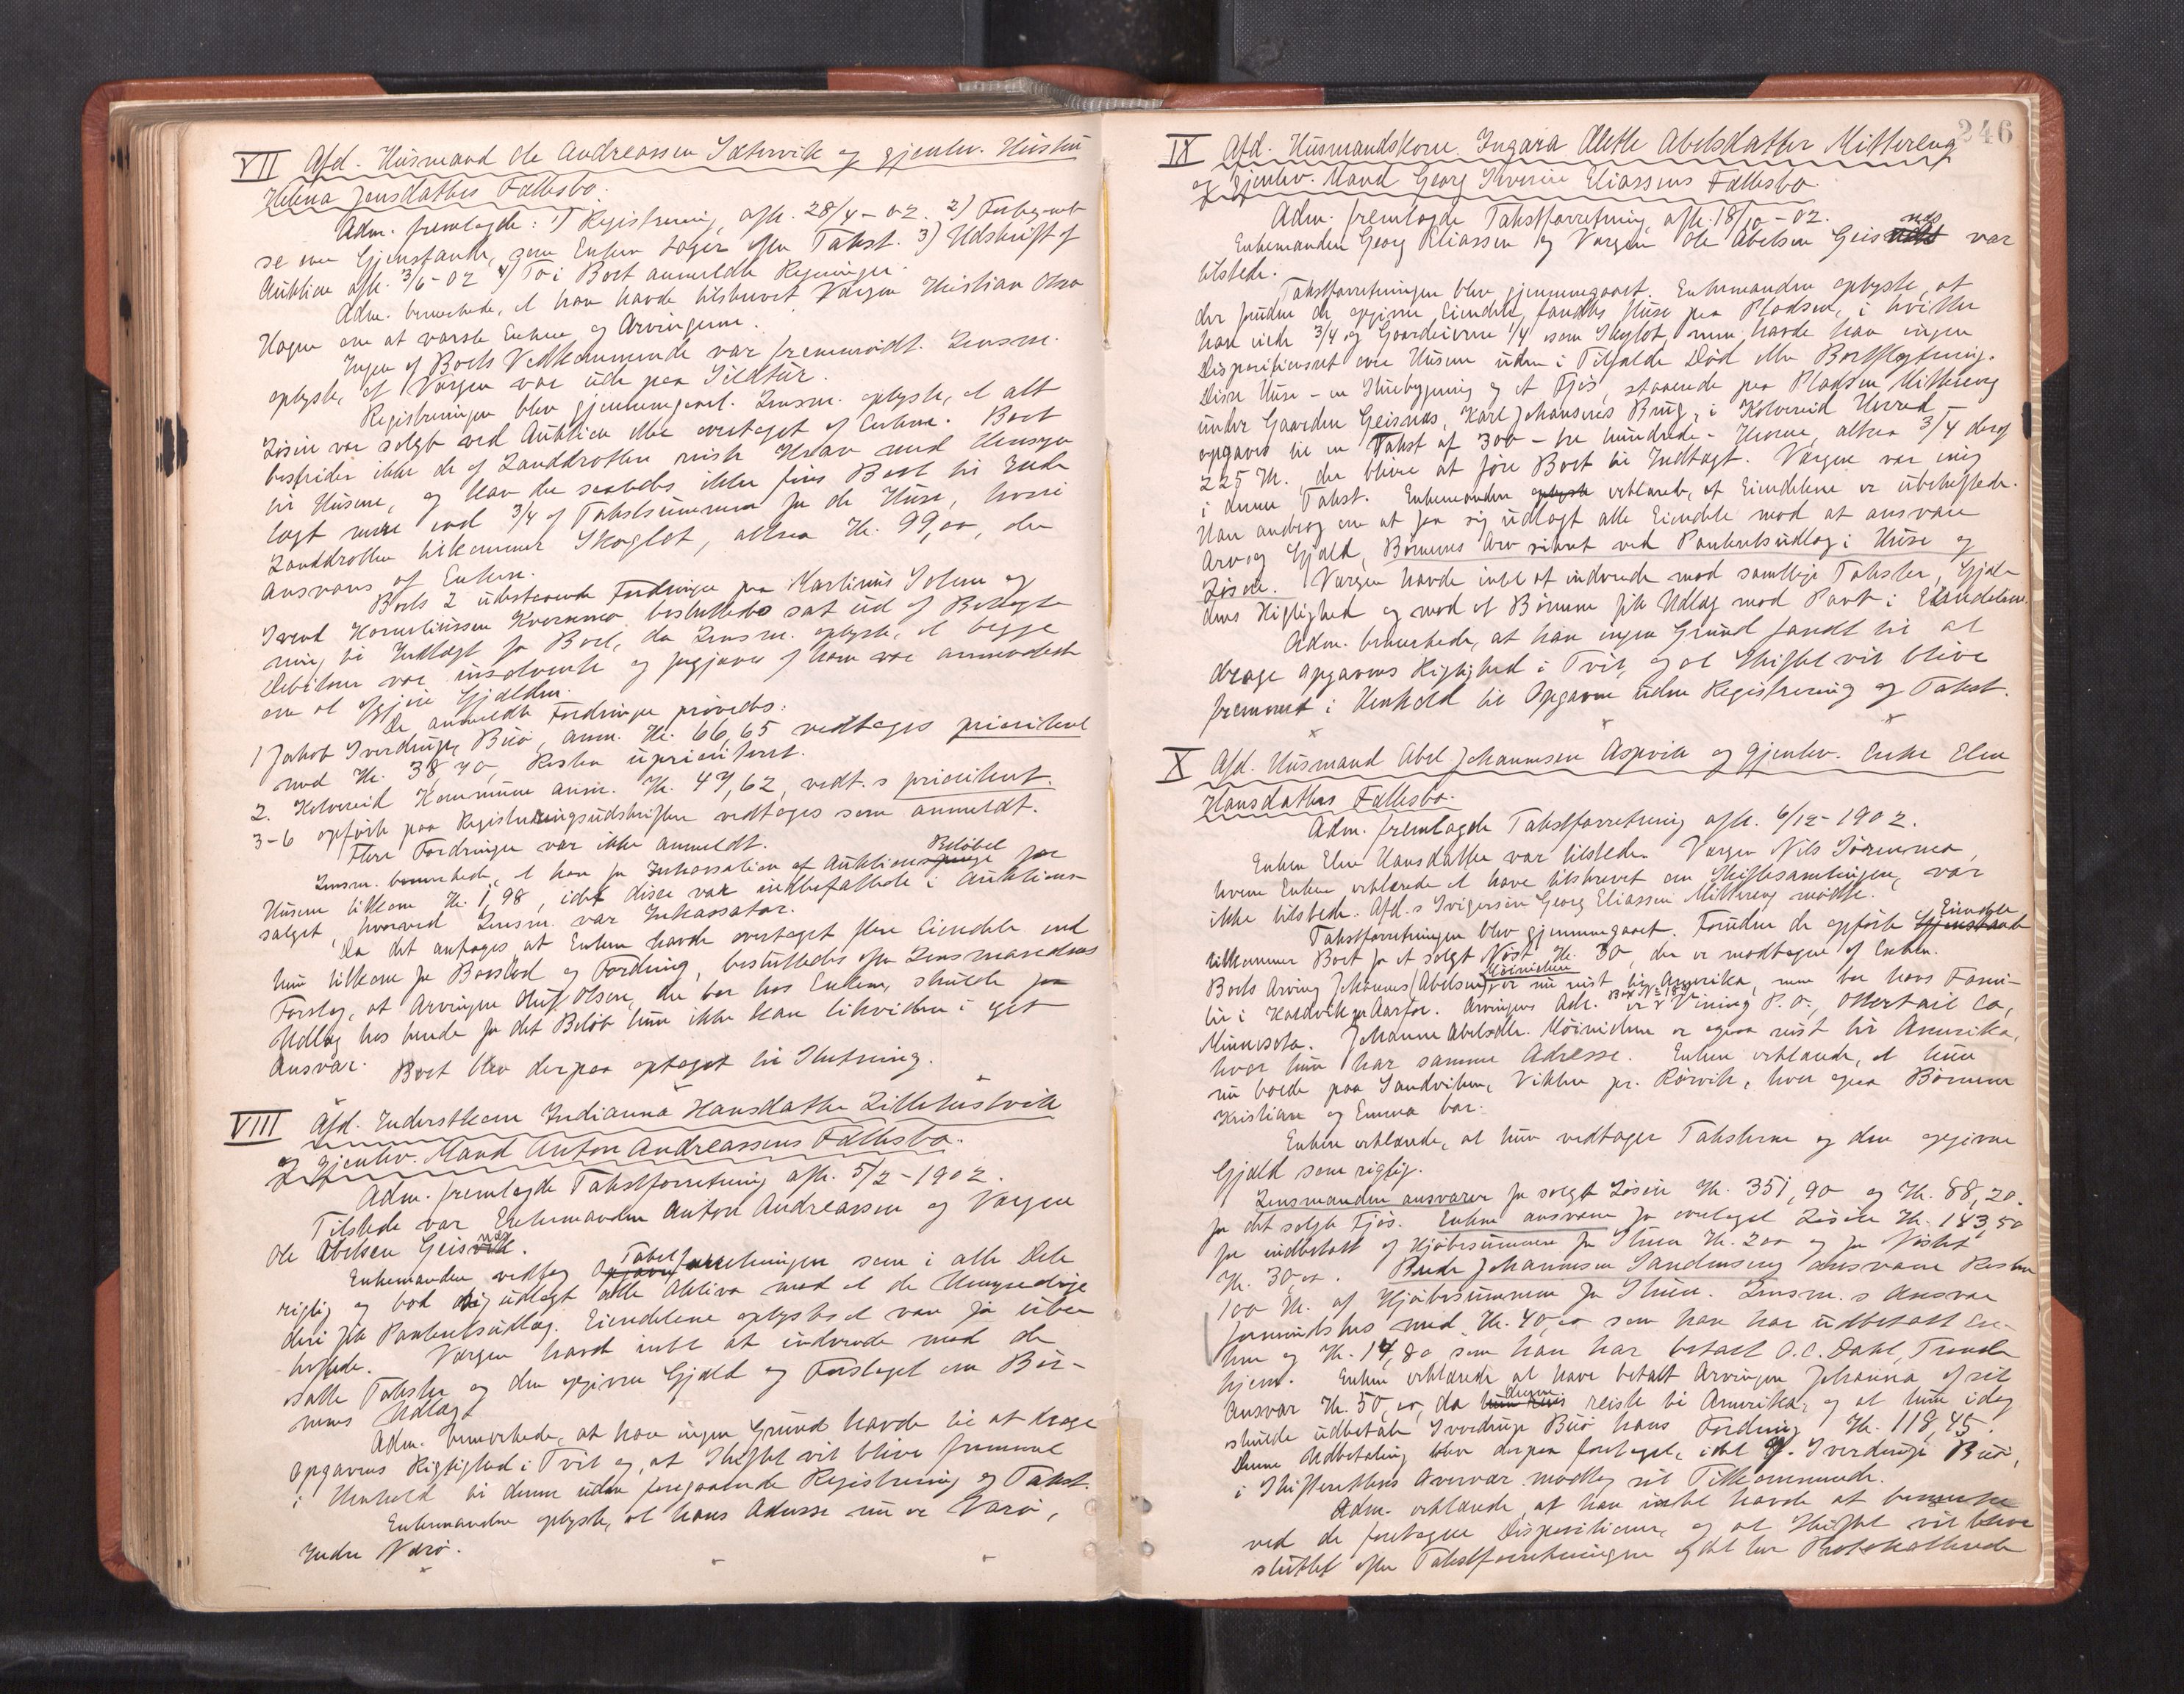 VII Afd. Husmand Ole Andreassen Sætervik og gjenlev. Hustru
Helena Jensdatters Fællesbo.
Adm. fremlagde: 1) Registrering, afh. 28/4-02. 2)
se over Gjenstande, som Enken tager efter Takst. 3) Udskrift af
Auktion afh. 3/6-02 4) To i Boet anmeldte Regninger.
Adm. bemerkede, at han havde tilskrevet Værgen Kristian Olsen
Hagen om at varsle Enken og Arvingerne.
Ingen af Boets Vedkommende var fremmødt. Lensm.
oplyste, at Værgen var ude paa Sildtur.
Registreringen blev gjennemgaaet. Lensm. oplyste, at alt
Løsøre var solgt ved Auktion eller overtaget af Enken. Boet
bestrider ikke de af Landdrotten reiste Krav med Hensyn
til Husene, og kan der saaledes ikke føres Boet til Ind-
tægt mere end 3/4 af Takstsummen for de Huse, hvori
Landdrotten tilkommer Skoglot, altsaa Kr. 99,00, der
ansvares af Enken.
Boets 2 udestaaende Fordringer paa Martinus Solem og
Svend Korneliussen Kvernmo besluttedes sat ud af Beregning
til Indtægt for Boet, da Lensm. oplyste, at begge
Debitorer var insolvente og forgjæves af ham var anmodede
om at opgjøre Gjælden.
De anmeldte Fordringer prøvedes:
1 Jakob Sverdrup, Buø, anm. Kr. 66,65 vedtages prioriteret
med Kr. 38,70, Resten uprioriteret.
2. Kolvereid Kommune anm. Kr. 47,62, vedt. s prioriteret.
3-6 opført paa Registreringsudskriften vedtages som anmeldt.
Flere Fordringer var ikke anmeldt.
Lensm. bemerkede, at han for Inkassation af Auktions Beløbet for
Husene tilkom Kr. 1,98, idet disse var indbefattede i Auktions-
salget, hvorved Lensm. var Inkassator.
Da det antages at Enken havde overtaget flere Eiendele end
hun tilkom for Boeslod og Fordring, besluttedes efter Lensmandens
Forslag, at Arvingen Oluf Olsen, der bor hos Enken, skulde faa
Udlæg hos hende for det Beløb hun ikke kan likvidere i eget
Ansvar. Boet blev derpaa optaget til Slutning.
VIII Afd. Inderstkone Indianna Hansdatter Lillekustvik
og gjenlev. Mand Anton Andreassens Fællesbo.
Adm. fremlagde Takstforretning afh. 5/2-1902.
Tilstede var Enkemanden Anton Andreassen og Værgen
Ole Abelsen Geisnæs.
Enkemanden vedtog Takstforretningen som i alle Dele
rigtig og bad sig udlagt alle Aktiva mod at de Umyndige
deri fik Panteretsudlæg. Eiendelene oplystes at være for ube-
heftede. Værgen havde intet at indvende mod de
satte Takster og den opgivne Gjæld og Forslaget om Bør-
nenes Udlægt.
Adm. bemerkede, at han ingen Grund havde til at drage
Opgavens Rigtighed i Tvil og, at Skiftet vil blive fremmet
i Henhold til denne uden foregaaende Registrering og Takst.
Enkemanden oplyste, at hans Adresse nu er Værø,
Indre Værø.
246
IX Afd. Husmandskone Ingara Alette Abelsdatter Mittereng
og gjenlev. Mand Georg Severin Eliassens Fællesbo.
Adm. fremlagde Takstforretning afh. 18/10-02.
Enkemanden Georg Eliassen og Værgen Ole Abelsen Geisnæs var
tilstede.
Takstforretningen blev gjennemgaaet. Enkemanden oplyste, at
der foruden de opgivne Eiendele fandtes Huse paa Pladsen, i hvilke
han eiede 3/4 og Gaardeierne 1/4 som Skoglot, men havde han ingen
Dispositionsret over Husene uden i Tilfælde Død eller Bortflytning.
Disse Huse - en Stuebygning og et Fjøs, staaende paa Pladsen Mittereng
under Gaarden Geisnæs, Karl Johansens Brug, i Kolvereid Herred -
opgaves til en Takst af 300 - tre hundrede - Kroner, altsaa 3/4 deraf
225 Kr. der bliver at føre Boet til Indtægt. Værgen var enig
i denne Takst. Enkemanden oplyste erklærede, at Eiendelene er ubeheftede.
Han androg om at faa sig udlagt alle Eiendele mod at ansvare
Arv og Gjæld, Børnenes Arv sikret ved Panteretsudlæg i Huse og
Løsøre. Værgen havde intet at indvende mod samtlige Takster, Gjæl-
dens Rigtighed og mod at Børnene fik Udlæg mod Pant i Eiendelene.
Adm. bemerkede, at han ingen Grund fandt til at
drage Opgavens Rigtighed i Tvil, og at Skiftet vil blive
fremmet i Henhold til Opgaven uden Registrering og Takst.
X Afd. Husmand Abel Johannesen Aspvik og gjenlev. Enke Elen
Hansdatters Fællesbo.
Adm. fremlagde Takstforretning afh. 6/12-1902.
Enken Elen Hansdatter var tilstede. Værgen Nils Sørenmo,
hvem Enken erklærede at have tilskrevet om Skiftesamlingen, var
ikke tilstede. Afd.s Svigersøn Georg Eliassen Mittereng mødte.
Takstforretningen blev gjennemgaaet. Foruden de opførte Eiendele
tilkommer Boet for et solgt Nøst Kr. 30, der er modtagne af Enken.
Boets Arving Johannes Abelsen, er nu reist til Amerika, men bor hans Fami-
lie i Kaldvik pr. Aarfor. Arvingens Adr. er Vining P.O., Ottertail Co,
Minnesota. Johanna Abelsdtr. Høiniehen er ogsaa reist til Amerika,
hvor hun har samme Adresse. Enken erklærede, at hun
nu boede paa Sandviken, Vikten pr. Rørvik, hvor ogsaa Børnene
Kristian og Emma bor.
Enken erklærede, at hun vedtager Taksterne og den opgivne
Gjæld som rigtig.
Lensmanden ansvarer for solgt Løsøre Kr. 351,90 og Kr. 88,20
for det solgte Fjøs. Enken ansvarer for overtaget Løsøre Kr. 143,50
for indbetalt af Kjøbesummen for Stuen Kr. 200 og for Nøstet
Kr. 30,00. Peder Johannesen Sandmseng ansvarer Resten
100 Kr. af Kjøbesummen for Stuen. Lensm.s Ansvar
formindskes med Kr. 40,00 som han har udbetalt En-
ken og Kr. 14,80 som han har betalt O.C. Dahl, Trond-
hjem. Enken erklærede at have betalt Arvingen Johanna af sit
Ansvar Kr. 50,00, da denne reiste til Amerika, og at hun idag
skulde udbetale Sverdrup Buø hans Fordring Kr. 118,45.
Denne Udbetaling blev derpaa foretaget, idet J. Sverdrup, Buø,
i Skifterettens Overvær modtog sit Tilkommende.
Adm. erklærede, at han intet havde at bemerke
ved de foretagne Dispositioner, og at Skiftet vil blive
sluttet efter Takstforretningen og det her Protokollerede